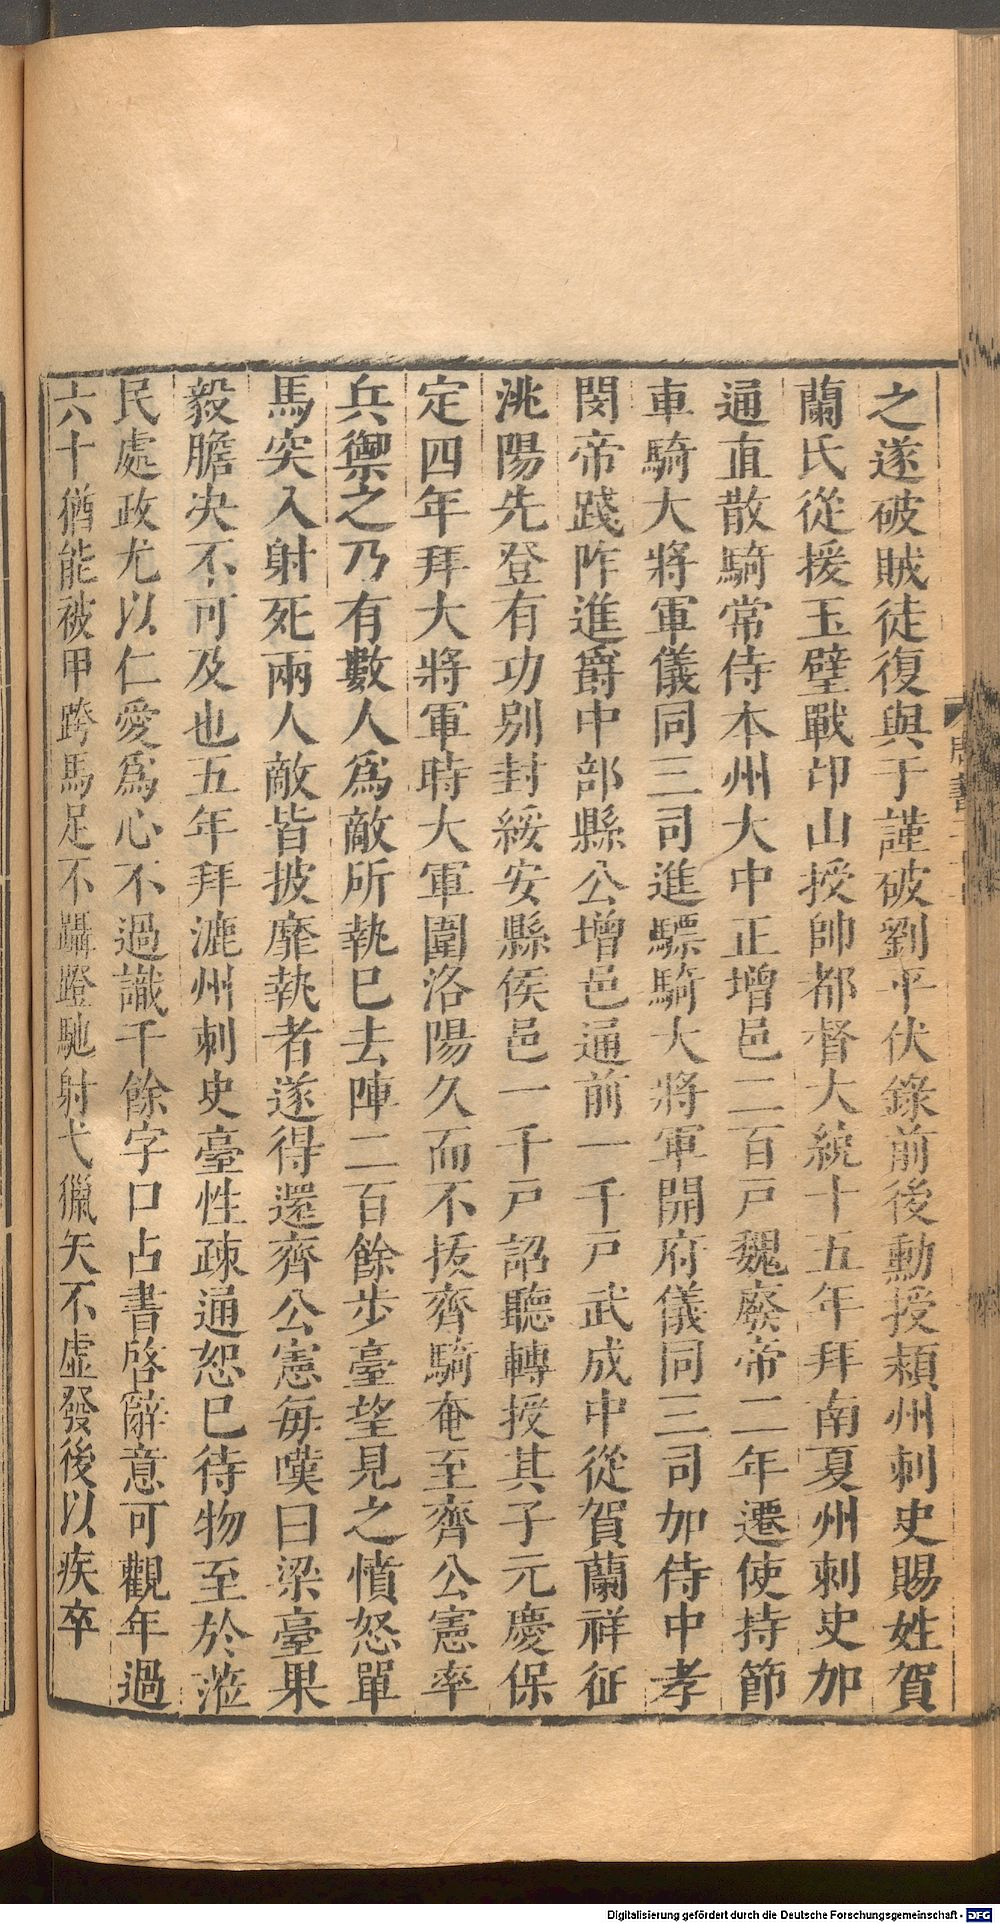 之遂破賊徒復與于謹破劉平伏錄前後勳授潁州刺史賜姓賀
蘭氏從援玉壁戰邙山授帥都督大統十五年拜南夏州刺史加
通直散騎常侍本州大中正增邑二百戸魏廢帝二年遷使持節
車騎大將軍儀同三司進驃騎大將軍開府儀同三司加侍中孝
閔帝踐阼進爵中部縣公增邑通前一千戸武成中從賀蘭祥征
洮陽先登有功别封綏安縣侯邑一千戸詔聽轉授其子元慶保
定四年拜大將軍時大軍圍洛陽久而不拔齊騎奄至齊公憲率
兵禦之乃有數人爲敵所執已去陣二百餘步臺望見之憤怒單
馬突入射死兩人敵皆披靡執者遂得還齊公憲每嘆曰梁臺果
毅膽决不可及也五年拜漉州刺史臺性疎通恕已待物至於涖
民處政尤以仁愛爲心不過識千餘字口占書啓辭意可觀年過
六十猶能被甲跨馬足不躡蹬馳射弋獵矢不虛發後以疾卒
Digitalisierung gefördert durch die Deutsche Forschungsgemeinschaft - DFG